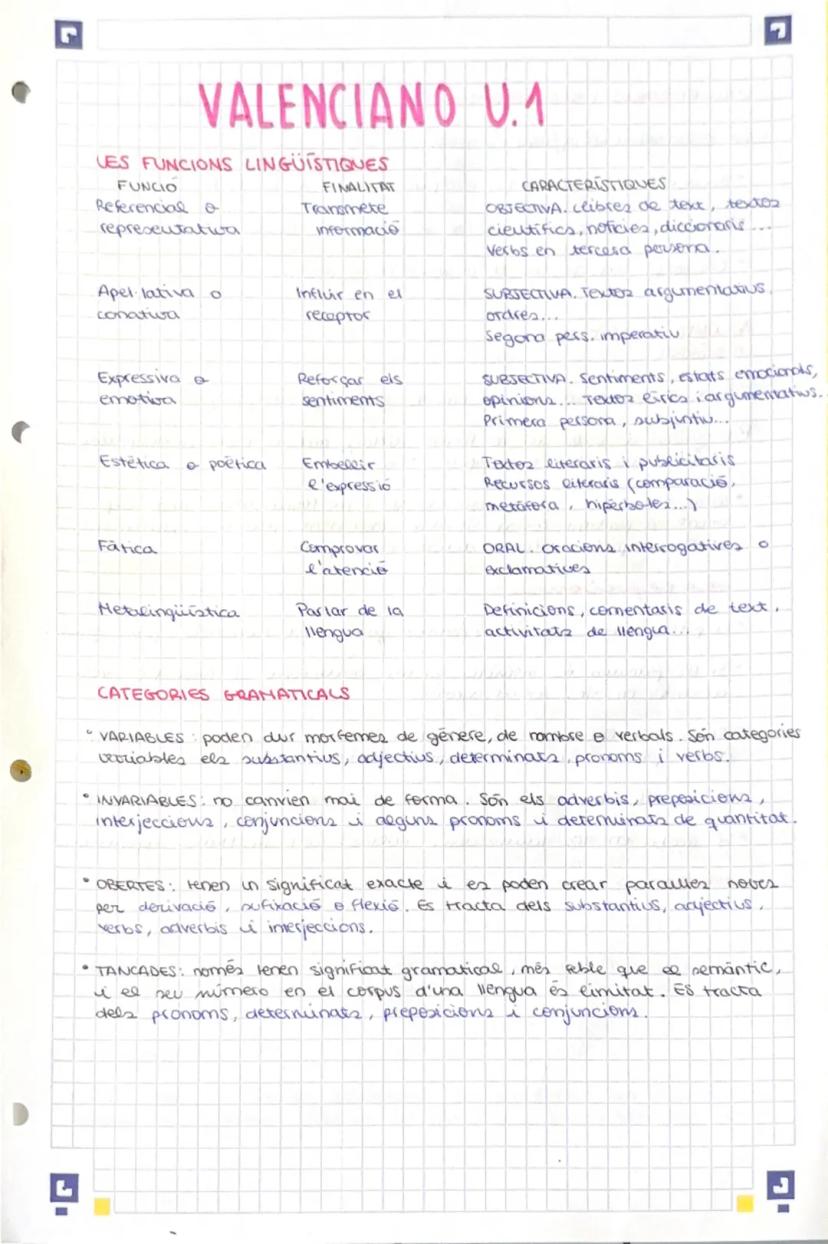 VALENCIANO U.1
LES FUNCIONS LINGÜÍSTIQUES
FUNCIÓ FINALITAT CARACTERÍSTIQUES
Referencial o Transmetre OBJECTIVA. Llibres de text, textos
representativa informació científics, notícies, diccionaris...
Verbs en tercera persona.
Apel·lativa o Influir en el SUBJECTIVA. Textos argumentatius,
conativa receptor ordres...
Segona pers. imperatiu
Expressiva o Reforçar els SUBJECTIVA. Sentiments, estats emocionals,
emotiva sentiments opinions... Textos lírics i argumentatius.
Primera persona, subjuntiu...
Estètica o poètica Embellir Textos literaris i publicitaris
l'expressió Recursos literaris (comparació,
metàfora, hipèrboles...)
Fàtica Comprovar ORAL. Oracions interrogatives o
l'atenció exclamatives
Metalingüística Parlar de la Definicions, comentaris de text,
llengua activitats de llengua...
CATEGORIES GRAMATICALS
• VARIABLES: poden dur morfemes de gènere, de nombre o verbals. Són categories
variables els substantius, adjectius, determinats, pronoms i verbs.
• INVARIABLES: no canvien mai de forma. Són els adverbis, preposicions,
interjeccions, conjuncions i alguns pronoms i determinats de quantitat.
• OBERTES: tenen un significat exacte i es poden crear paraules noves
per derivació, sufixació o flexió. Es tracta dels substantius, adjectius,
verbs, adverbis i interjeccions.
• TANCADES: només tenen significat gramatical, més feble que el semàntic,
i el seu número en el corpus d'una llengua és limitat. Es tracta
dels pronoms, determinats, preposicions i conjuncions.